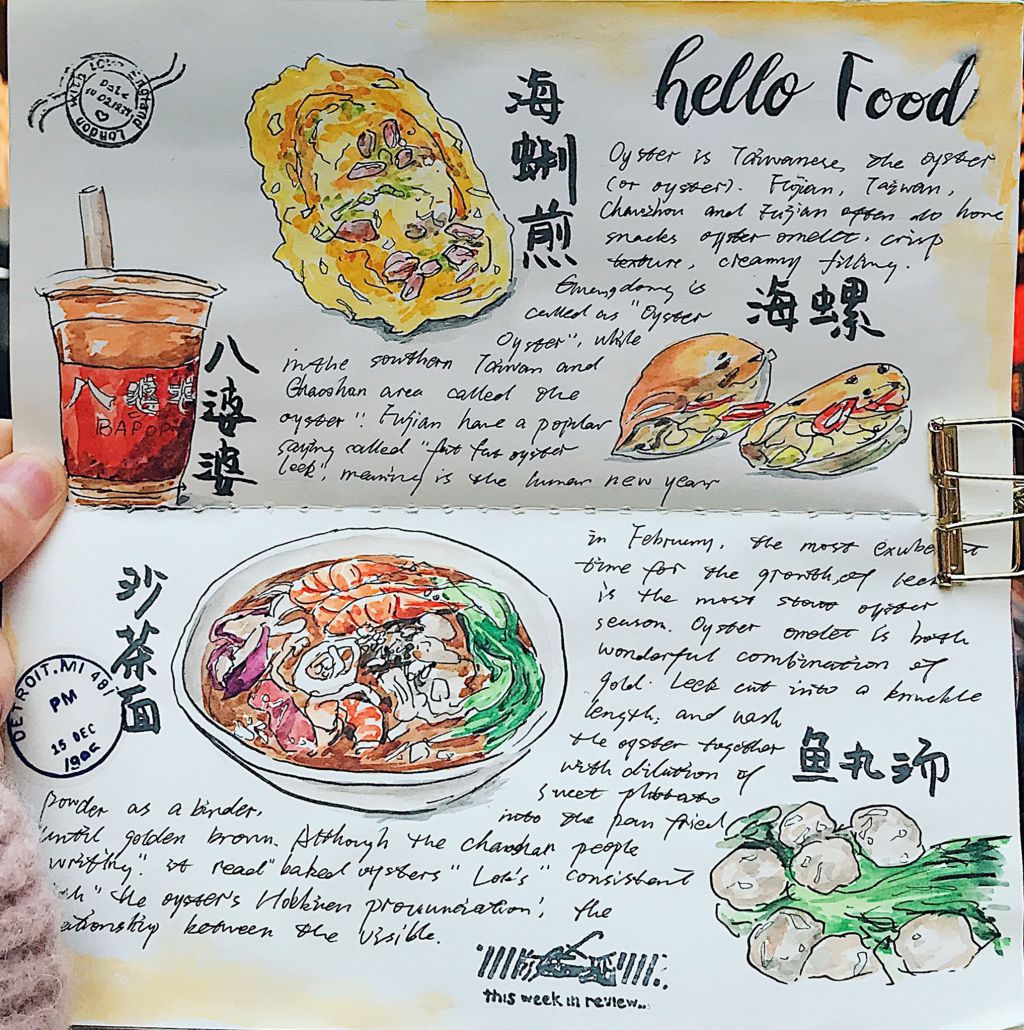 with Love England London
Date
14 02 1939
hello Food
海
蜊
煎
Oyster is Taiwanese, the oyster
(or oyster). Fujian, Taiwan,
Chaoshou and Fujian often do home
snacks oyster omelet, crisp
texture, creamy filling.
Guangdong is
called as "Oyster
Oyster", while
海螺
in the southern Taiwan and
Chaoshan area called the
oyster". Fujian have a popular
saying called "fat fat oyster
leek", meaning is the lunar new year
八
婆
婆
八婆
BAPOP
in February, the most exube
time for the growth of leek
is the most stout oyster
season. Oyster omelet is both
wonderful combination of
gold. Leek cut into a knuckle
length, and wash
the oyster together
with dilution of
sweet
into the pan fried
沙
茶
面
DETROIT, MI 481
PM
15 DEC
1995
鱼丸汤
powder as a binder,
until golden brown. Although the chaoshan people
writing". it read "baked oysters" "Lok's" consistent
"the oyster's Hokkien pronunciation", the
ationship between the visible.
this week in review...